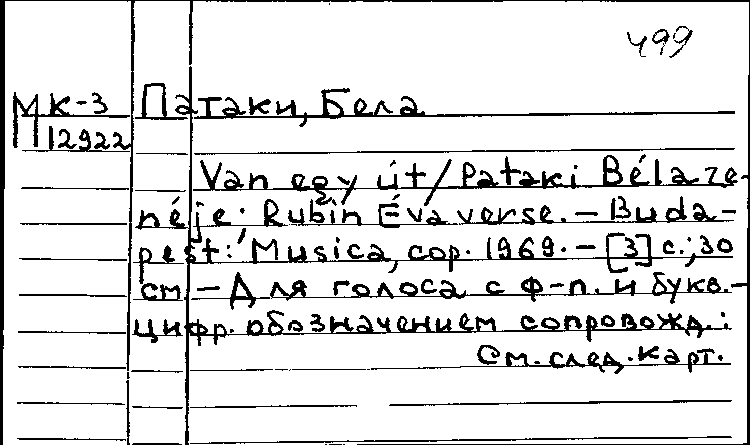 499
МК-3 Патаки, Бела
12922
Van egy út / Pataki Béla ze-
néje; Rubin Éva verse. – Buda-
pest: Musica, cop. 1969. – [3] с.; 30
см. – Для голоса с ф-п. и букв.-
цифр. обозначением сопровожд.:
См. след. карт.